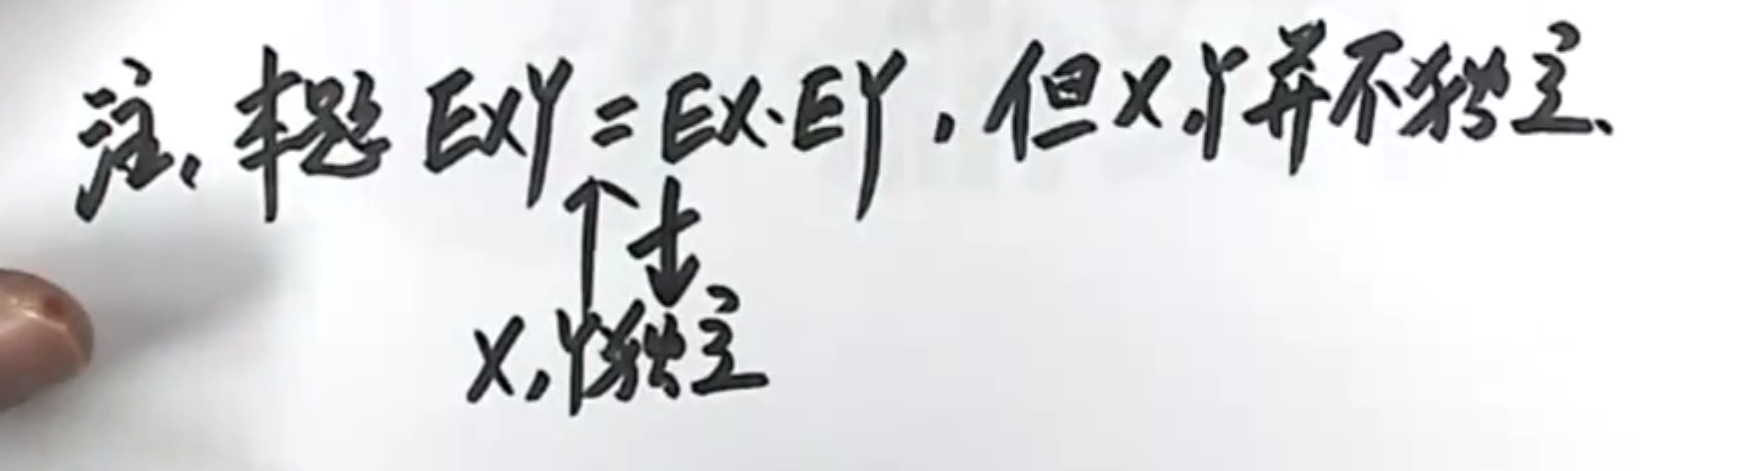 注，本题 EXY = EX·EY，但X,Y并不独立、
X,Y独立